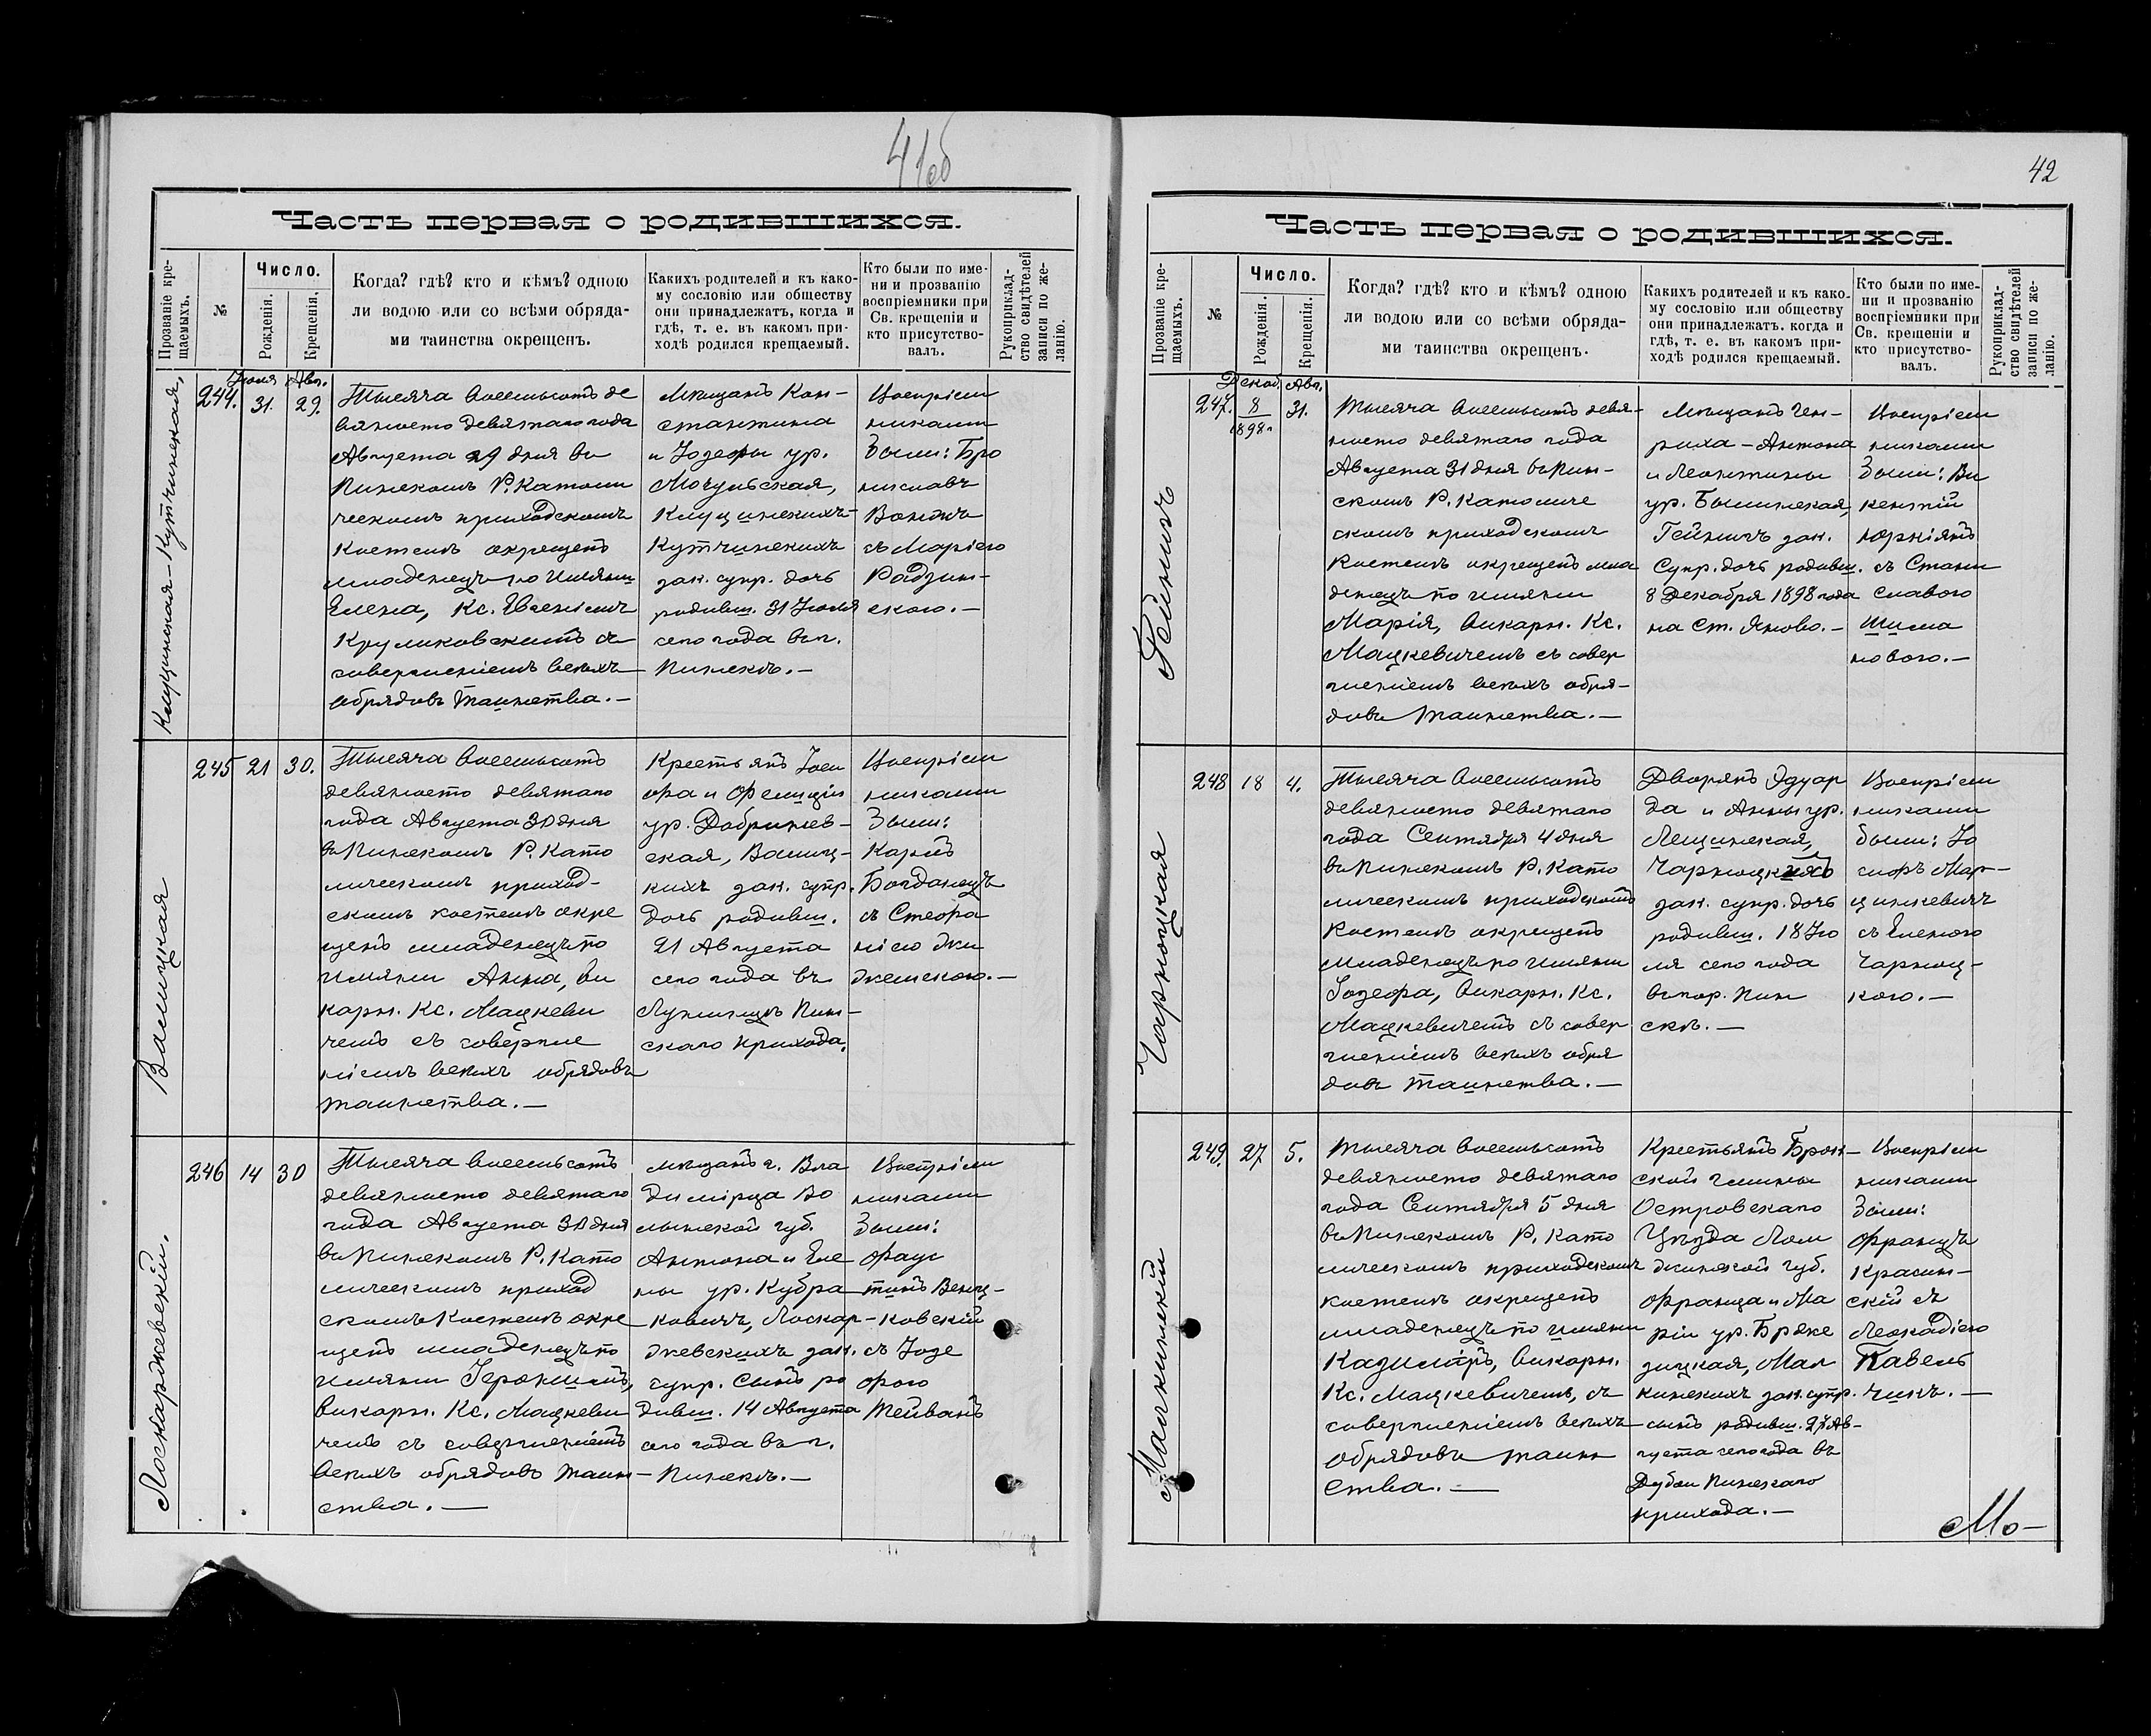 41об
Часть первая о родившихся.
Прозваніе кре-
щаемыхъ.
№
Число.
Рожденія.
Крещенія.
Когда? гдѣ? кто и кѣмъ? одною
ли водою или со всѣми обряда-
ми таинства окрещенъ.
Какихъ родителей и къ како-
му сословію или обществу
они принадлежатъ, когда и
гдѣ, т. е. въ какомъ при-
ходѣ родился крещаемый.
Кто были по име-
ни и прозванію
воспріемники при
Св. крещеніи и
кто присутство-
валъ.
Рукоприклад-
ство свидѣтелей
записи по же-
ланію.
Клущинская-Кутчинская,
244.
Іюля
31.
Авг.
29.
Тысяча восемьсотъ де
вяносто девятаго года
Августа 29 дня въ
Пинскомъ Р. Католи
ческомъ приходскомъ
Костелѣ окрещенъ
младенецъ по имяни
Елена, Кс. Евгеніемъ
Круликовскимъ съ
совершеніемъ всѣхъ
обрядовъ таинства.-
Мѣщанъ Кон-
стантина
и Іозефы ур.
Мочульская,
Клущинскихъ-
Кутчинскихъ
зак. супр. дочь
родивш. 31 Іюля
сего года въ г.
Пинскѣ.-
Воспріем
никами
были: Бро
ниславъ
съ Маріею
Радзин-
скою.-
Валицкая
245
21
30.
Тысяча восемьсотъ
девяносто девятаго
года Августа 30 дня
въ Пинскомъ Р. Като
лическомъ приход-
скомъ костелѣ окре
щенъ младенецъ по
имяни Анна, ви
карн. Кс. Мацкеви
чемъ съ соверше
ніемъ всѣхъ обрядовъ
таинства.-
Крестьянъ
и Фелиціи
ур. Добринев-
ская, Валиц-
кихъ зак. супр.
дочь родивш.
21 Августа
сего года въ
Лунинцѣ Пин-
скаго прихода.
Воспріем
никами
были:
Карлъ
Богданецъ
съ Стефа
ніею
Лоскаржевскій.
246
14
30
Тысяча восемьсотъ
девяносто девятаго
года Августа 30 дня
въ Пинскомъ Р. Като
лическомъ приход
скомъ Костелѣ окре
щенъ младенецъ по
имяни Іеронимъ,
викарн. Кс. Мацкеви
чемъ съ совершеніемъ
всѣхъ обрядовъ таин-
ства.-
мѣщанъ г. Вла
димірца Во
лынской губ.
Антона и Еле
ны ур. Кубра
ковичъ, Лоскар-
жевскихъ зак.
супр. сынъ ро
дивш. 14 Августа
сего года въ г.
Пинскѣ.-
Воспріем
никами
были:
Фаус
тинъ Венц-
ковскій
съ Іозе
фою
Мейванъ
42
Часть первая о родившихся.
Прозваніе кре-
щаемыхъ.
№
Число.
Рожденія.
Крещенія.
Когда? гдѣ? кто и кѣмъ? одною
ли водою или со всѣми обряда-
ми таинства окрещенъ.
Какихъ родителей и къ како-
му сословію или обществу
они принадлежатъ. когда и
гдѣ, т. е. въ какомъ при-
ходѣ родился крещаемый.
Кто были по име-
ни и прозванію
воспріемники при
Св. крещеніи и
кто присутство-
валъ.
Рукоприклад-
ство свидѣтелей
записи по же-
ланію.
Гейничъ
247.
Декаб.
8
1898г
Авг.
31.
Тысяча восемьсотъ девя-
носто девятаго года
Августа 31 дня въ Пин-
скомъ Р. Католиче
скомъ приходскомъ
Костелѣ окрещенъ мла
денецъ по имяни
Марія, викарн. Кс.
Мацкевичемъ съ совер
шеніемъ всѣхъ обря-
довъ таинства.-
Мѣщанъ Ген-
риха-Антона
и Леонтины
ур. Былинская,
Гейничъ зак.
супр. дочь родивш.
8 Декабря 1898 года
на ст. Яново.-
Воспріем
никами
были: Ви
кентій
Юркіянъ
съ Стани
славою
Шима
новою.-
Чарноцкая
248
18
4.
Тысяча восемьсотъ
девяносто девятаго
года Сентября 4 дня
въ Пинскомъ Р. Като
лическомъ приходскомъ
Костелѣ окрещенъ
младенецъ по имяни
Іозефа, викарн. Кс.
Мацкевичемъ съ совер
шеніемъ всѣхъ обря
довъ таинства.-
Дворянъ Эдуар
да и Анны ур.
Лещинская,
Чарноцкихъ
зак. супр. дочь
родивш. 18 Ію
ля сего года
въ гор. Пин
скѣ.-
Воспріем
никами
были: Іо
сифъ Мар-
цинкевичъ
съ Еленою
Чарноц-
кою.-
Малкинскій
249.
27
5.
Тысяча восемьсотъ
девяносто девятаго
года Сентября 5 дня
въ Пинскомъ Р. Като
лическомъ приходскомъ
костелѣ окрещенъ
младенецъ по имяни
Казиміръ, викарн.
Кс. Мацкевичемъ, съ
совершеніемъ всѣхъ
обрядовъ таин
ства.-
Крестьянъ Брок-
ской гмины
Островскаго
Уѣзда Лом
жинской губ.
Франца и Ма
ріи ур. Бржe
зицкая, Мал
кинскихъ зак. супр.
сынъ родивш. 27 Ав-
густа сего года въ
Дубои Пинскаго
прихода.-
Воспріем
никами
были:
Францъ
Красин-
скій съ
Леокадіею
Павель
чикъ.-
Мо-